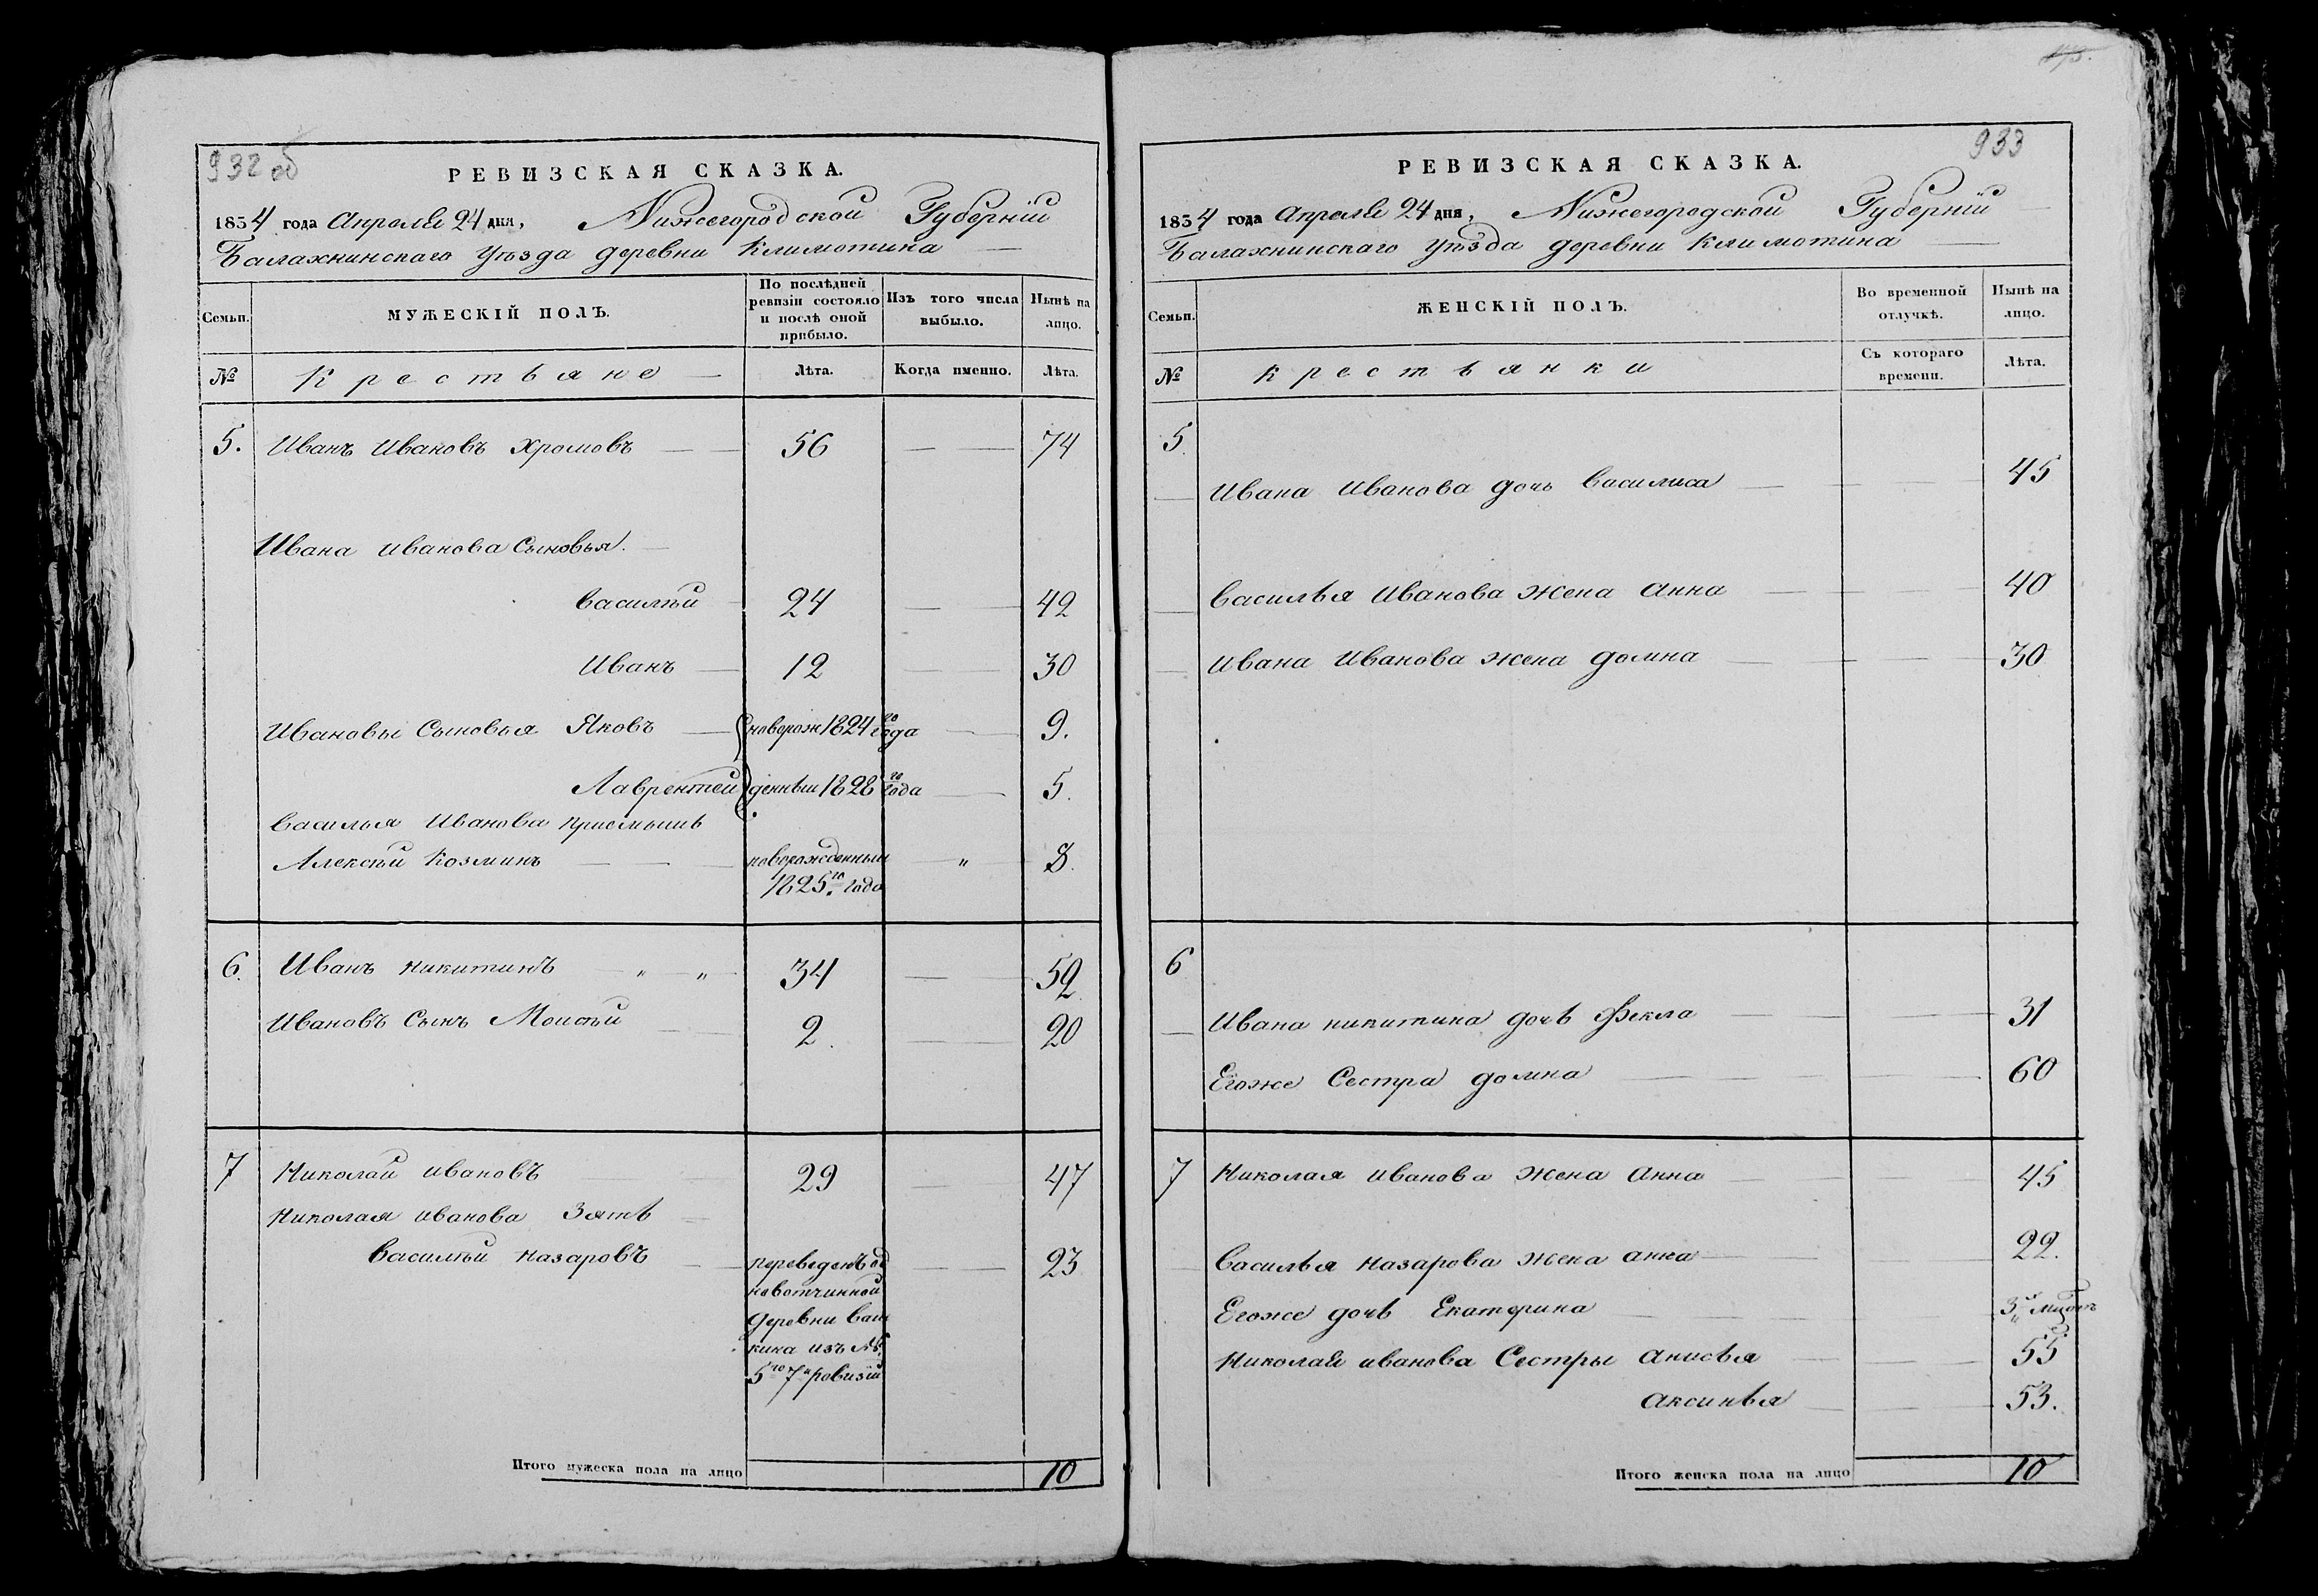 932 об
РЕВИЗСКАЯ СКАЗКА.
1834 года Апреля 24 дня, Нижегородской Губерніи
Балахнинскаго Уѣзда деревни Климотина
Семьи.
МУЖЕСКІЙ ПОЛЪ.
По послѣдней ревизіи состояло и послѣ оной прибыло.
Изъ того числа выбыло.
Нынѣ на лицо.
№ Крестьяне Лѣта. Когда именно. Лѣта.
5. Иванъ Ивановъ Хромовъ 56 74
Ивана Иванова Сыновья.
Василѣй 24 42
Иванъ 12 30
Ивановы Сыновья Яковъ новорож 1824го года 9.
Лаврентей денныи 1828го года 5.
Василья Иванова приемышь
Алексѣй Козминъ новорожденный „ 8.
1825.го года
6. Иванъ Никитинъ „ „ 34 52
Ивановъ Сынъ Моисѣй 2. 20
7 Николай Ивановъ 29 47
Николая Иванова Зять
Василѣй Назаровъ переведенъ од 23
новотчинной
деревни Ваш
кина изъ №
5го 7й ревизіи
Итого мужеска пола на лицо 10
933
РЕВИЗСКАЯ СКАЗКА.
1834 года Апреля 24 дня, Нижегородской Губерніи
Балахнинскаго Уѣзда деревни Климотина
Семьи.
ЖЕНСКІЙ ПОЛЪ.
Во временной отлучкѣ.
Нынѣ на лицо.
№ Крестьянки Съ котораго времени. Лѣта.
5.
Ивана Иванова дочь Василиса 45
Василья Иванова жена Анна 40
Ивана Иванова жена Домна 30
6
Ивана Никитина дочь Фекла 31
Егоже Сестра Домна 60
7 Николая Иванова жена Анна 45
Василья Назарова жена Анна 22.
Егоже дочь Екатерина 3х
Николая Иванова Сестры Анисья 55
Аксинья 53.
Итого женска пола на лицо 10